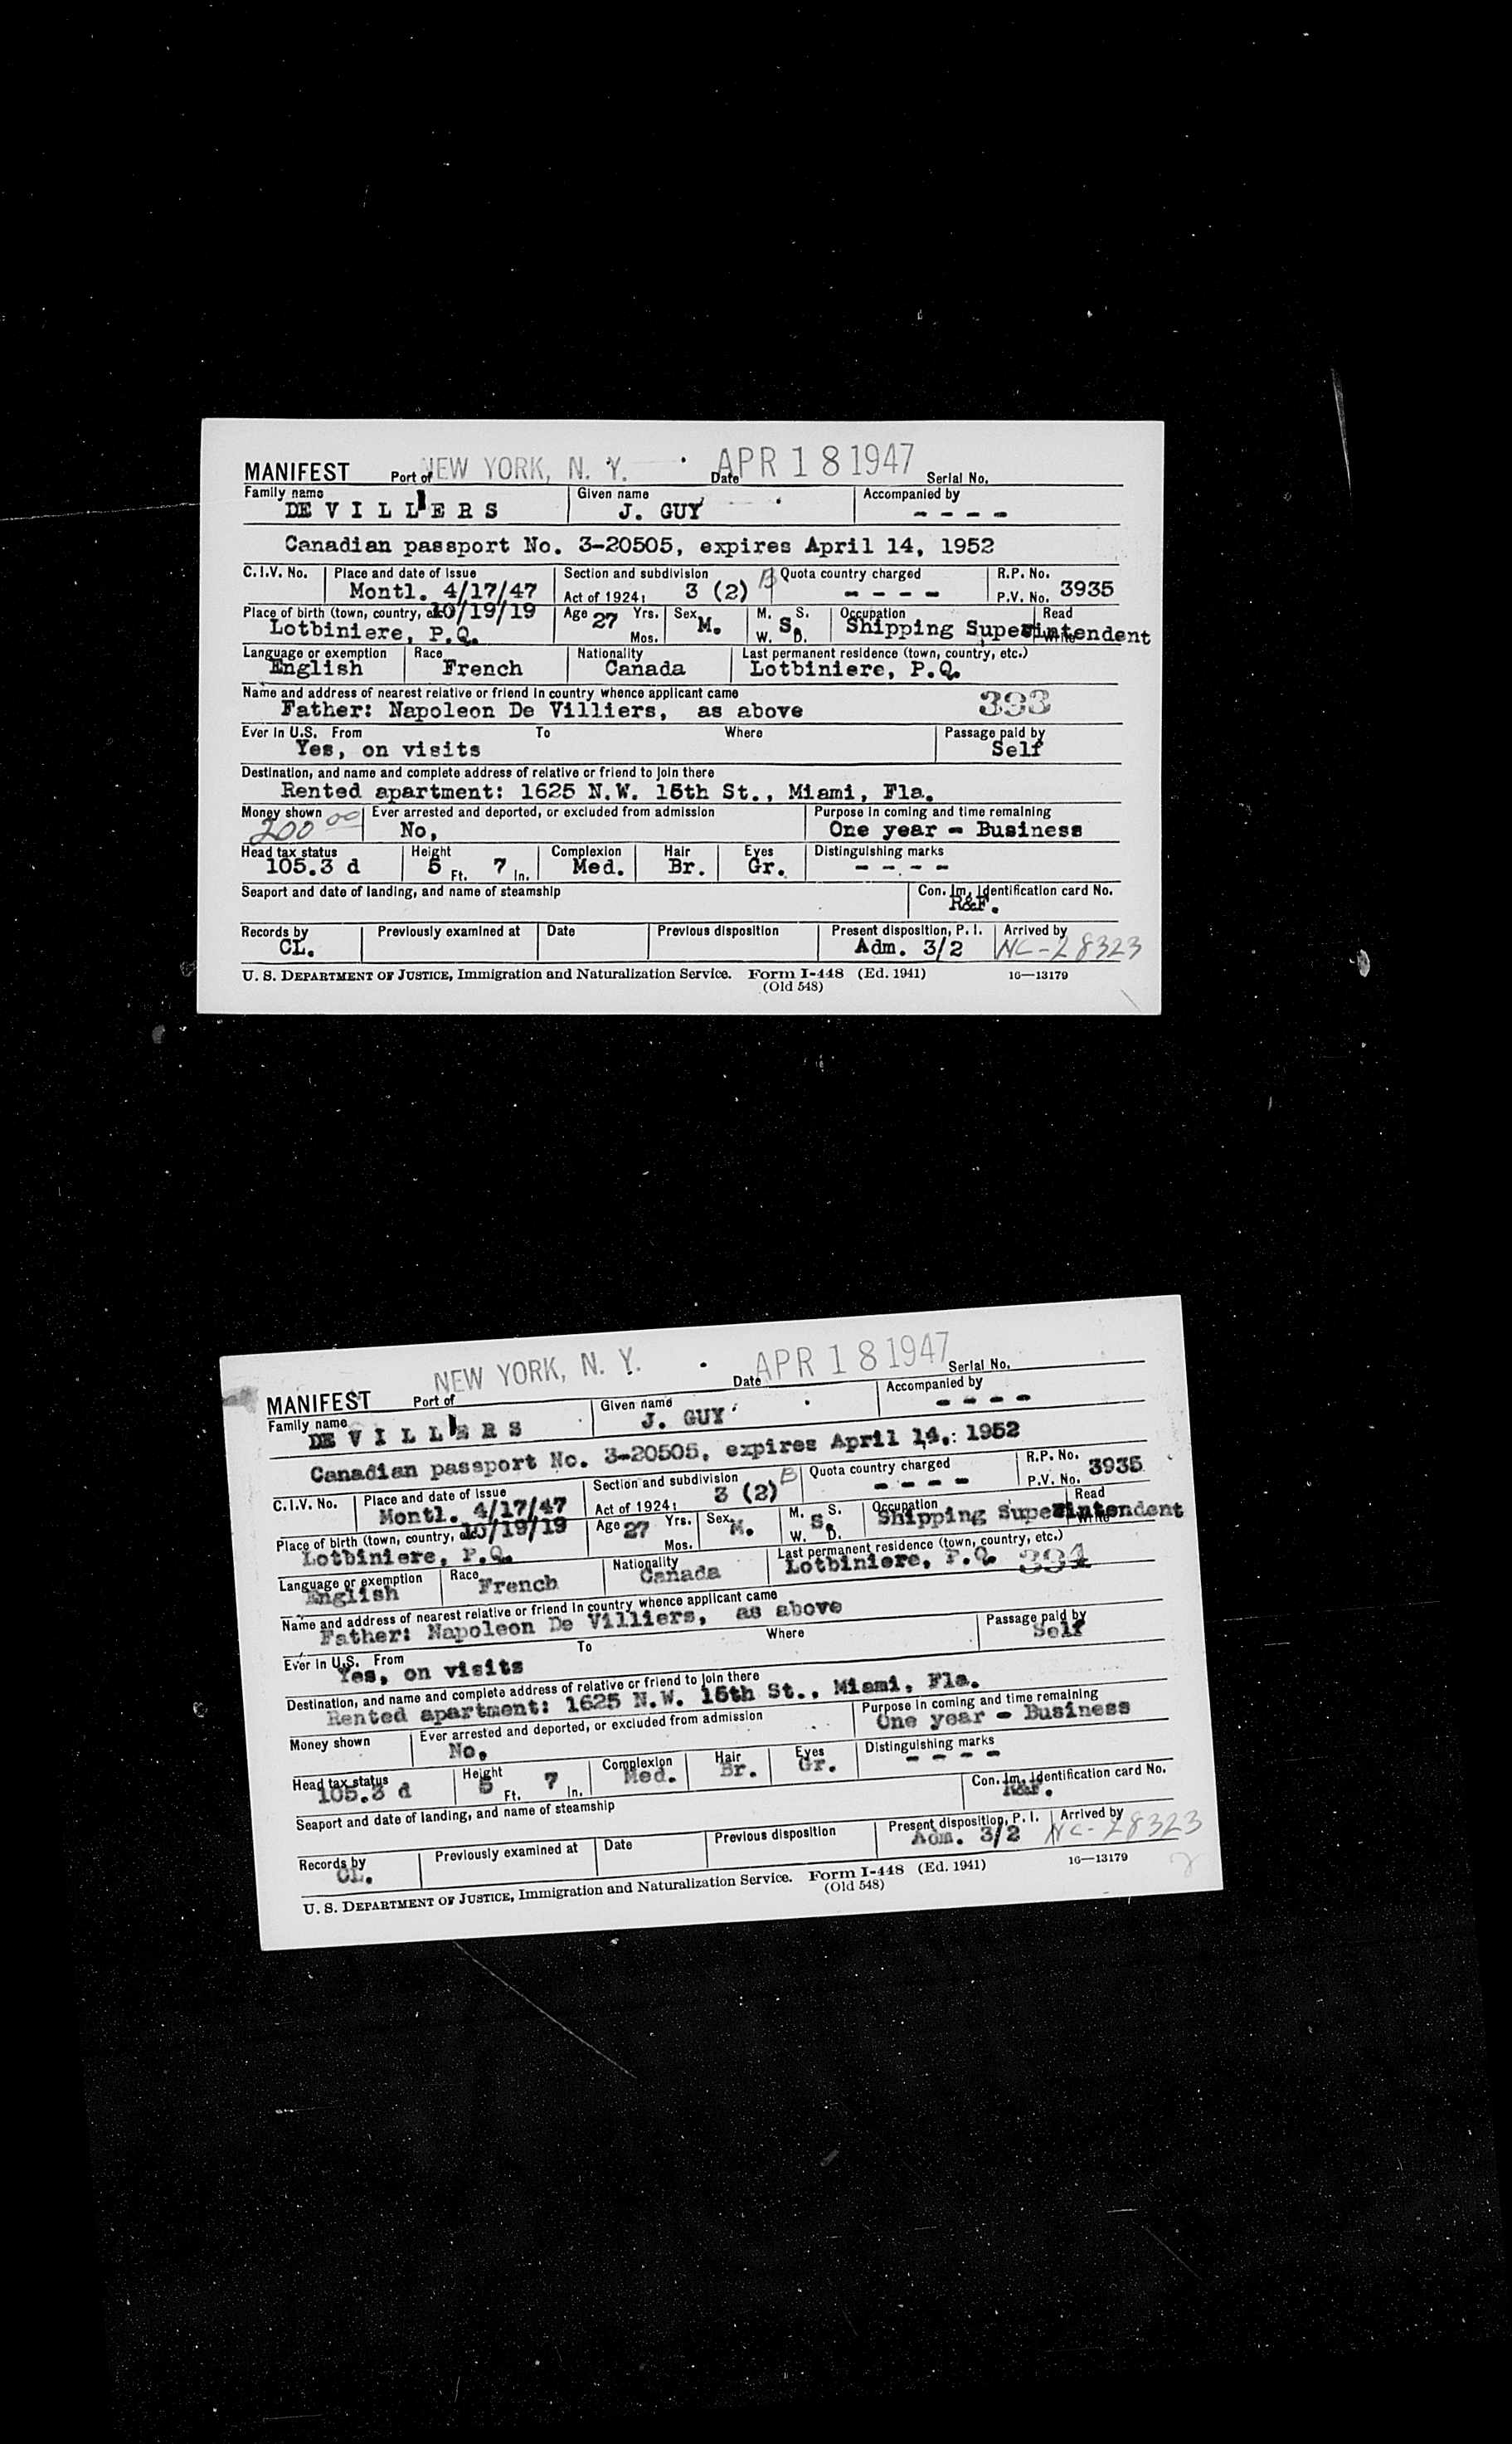 MANIFEST Port of NEW YORK, N. Y. Date APR 18 1947 Serial No.
Family name Given name Accompanied by
DE V I L L I E R S J. GUY - - - -
Canadian passport No. 3-20505, expires April 14, 1952
C.I.V. No. Place and date of issue Section and subdivision B Quota country charged R.P. No.
Montl. 4/17/47 Act of 1924: 3 (2) - - - - P.V. No. 3935
Place of birth (town, country, etc.) 10/19/19 Age 27 Yrs. Sex M. M. S. Occupation Read
Lotbiniere, P.Q. Mos. W. S. D. Shipping Superintendent Write
Language or exemption Race Nationality Last permanent residence (town, country, etc.)
English French Canada Lotbiniere, P.Q.
Name and address of nearest relative or friend in country whence applicant came
Father: Napoleon De Villiers, as above 393
Ever in U.S. From To Where Passage paid by
Yes, on visits Self
Destination, and name and complete address of relative or friend to join there
Rented apartment: 1625 N.W. 15th St., Miami, Fla.
Money shown Ever arrested and deported, or excluded from admission Purpose in coming and time remaining
200 00 No, One year - Business
Head tax status Height Complexion Hair Eyes Distinguishing marks
105.3 d 5 Ft. 7 In. Med. Br. Gr. - - - -
Seaport and date of landing, and name of steamship Con. Im. Identification card No.
R&F.
Records by Previously examined at Date Previous disposition Present disposition, P. I. Arrived by
CL. Adm. 3/2 NC-28323
U. S. DEPARTMENT OF JUSTICE, Immigration and Naturalization Service. Form I-448 (Ed. 1941) 16—13179
(Old 548)
MANIFEST Port of NEW YORK, N. Y. Date APR 18 1947 Serial No.
Family name Given name Accompanied by
DE V I L L I E R S J. GUY - - - -
Canadian passport No. 3-20505, expires April 14, 1952
C.I.V. No. Place and date of issue Section and subdivision B Quota country charged R.P. No.
Montl. 4/17/47 Act of 1924: 3 (2) - - - - P.V. No. 3935
Place of birth (town, country, etc.) 10/19/19 Age 27 Yrs. Sex M. M. S. Occupation Read
Lotbiniere, P.Q. Mos. W. S. D. Shipping Superintendent Write
Language or exemption Race Nationality Last permanent residence (town, country, etc.)
English French Canada Lotbiniere, P.Q. 394
Name and address of nearest relative or friend in country whence applicant came
Father: Napoleon De Villiers, as above
Ever in U.S. From To Where Passage paid by
Yes, on visits Self
Destination, and name and complete address of relative or friend to join there
Rented apartment: 1625 N.W. 15th St., Miami, Fla.
Money shown Ever arrested and deported, or excluded from admission Purpose in coming and time remaining
No, One year - Business
Head tax status Height Complexion Hair Eyes Distinguishing marks
105.3 d 5 Ft. 7 In. Med. Br. Gr. - - - -
Seaport and date of landing, and name of steamship Con. Im. Identification card No.
R&F.
Records by Previously examined at Date Previous disposition Present disposition, P. I. Arrived by
CL. Adm. 3/2 NC-28323
U. S. DEPARTMENT OF JUSTICE, Immigration and Naturalization Service. Form I-448 (Ed. 1941) 16—13179
(Old 548) 2